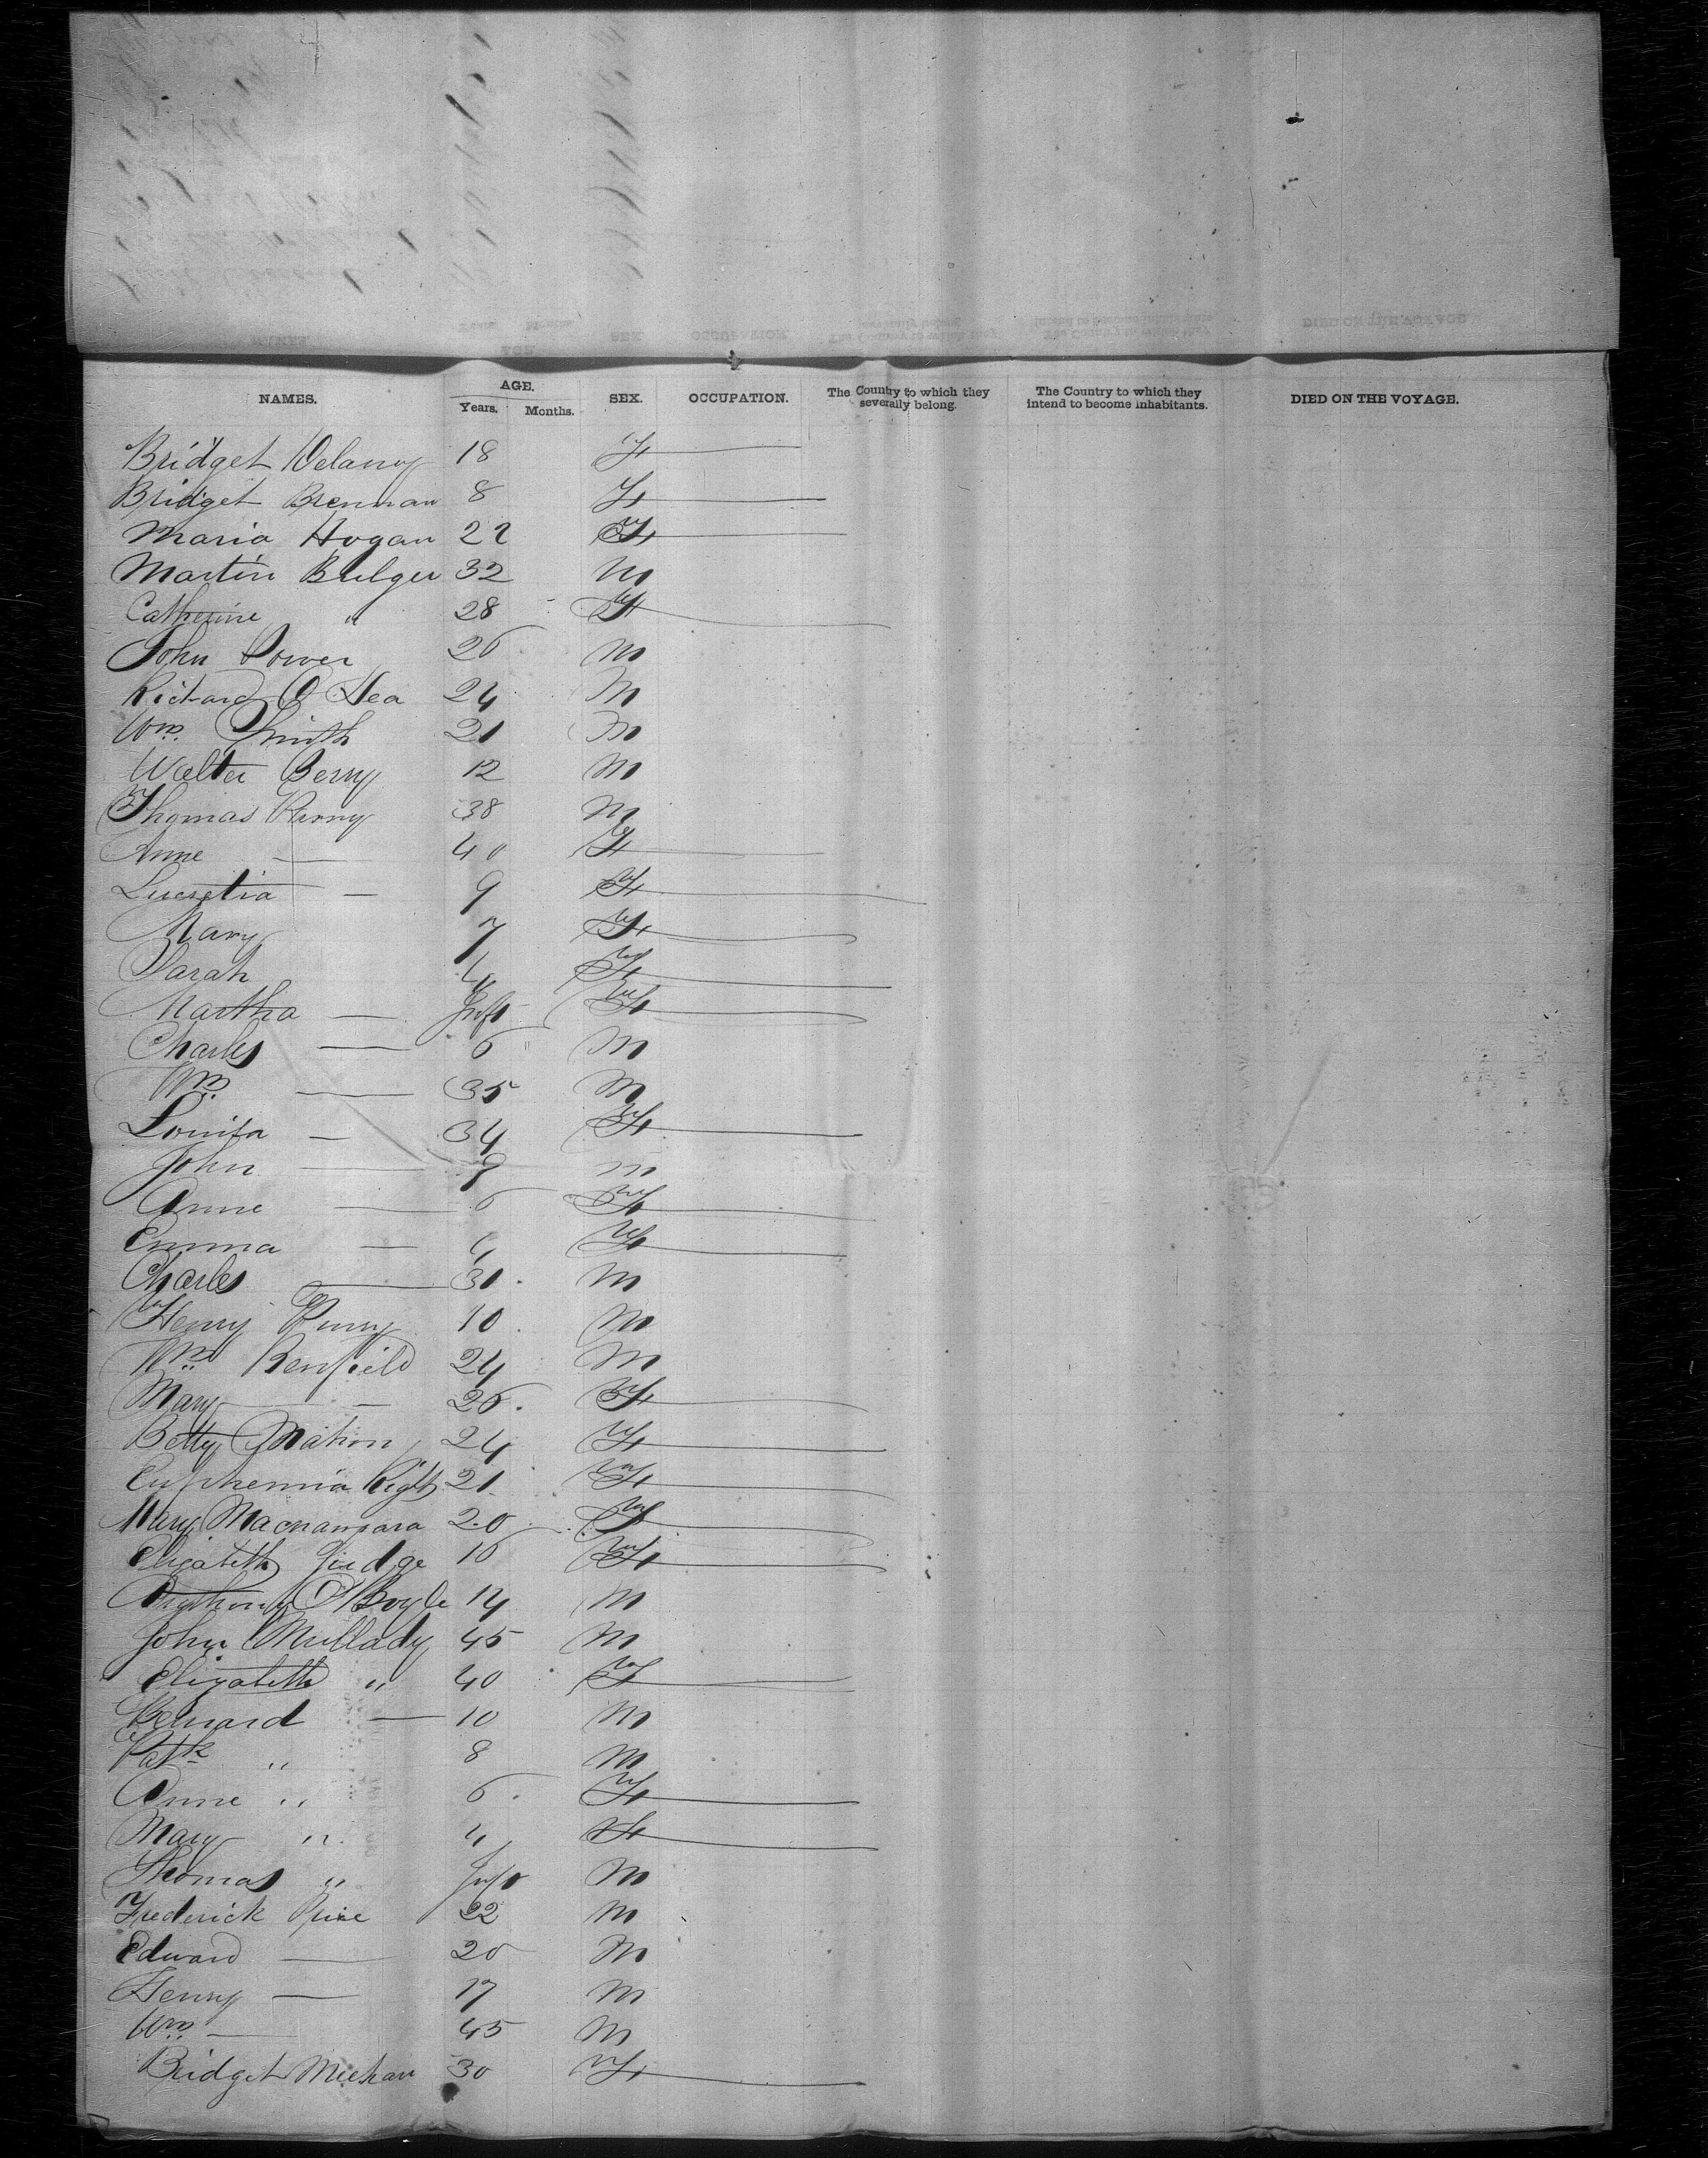 NAMES. AGE. Years. Months. SEX. OCCUPATION. The Country to which they severally belong. The Country to which they intend to become inhabitants. DIED ON THE VOYAGE.
Bridget Delany 18 F
Bridget Brennan 8 F
Maria Hogan 22 F
Martin Bulger 32 M
Catherine " 28 F
John Power 26 M
Richard O Hea 24 M
Wm. Smith 21 M
Walter Berry 12 M
Thomas Perry 38 M
Anne — 40 F
Lucretia — 9 F
Mary 7 F
Sarah 4 F
Martha — Inft F
Charles — 6 M
Wm — 35 M
Louisa — 34 F
John — 9 M
Anne — 6 F
Emma — 4 F
Charles — 31 M
Henry Perry 10 M
Wm Benfield 24 M
Mary — 26 F
Betty Mahon 24 F
Euphemia 21 F
Mary Macnamara 20 F
Elizabeth Judge 16 F
Anthony O'Boyle 14 M
John Mullady 45 M
Elizabeth " 40 F
Bernard — 10 M
Patk " 8 M
Anne " 6 F
Mary " 4 F
Thomas " Inft M
Frederick 22 M
Edward — 20 M
Henry — 17 M
Wm — 45 M
Bridget Meehan 30 F